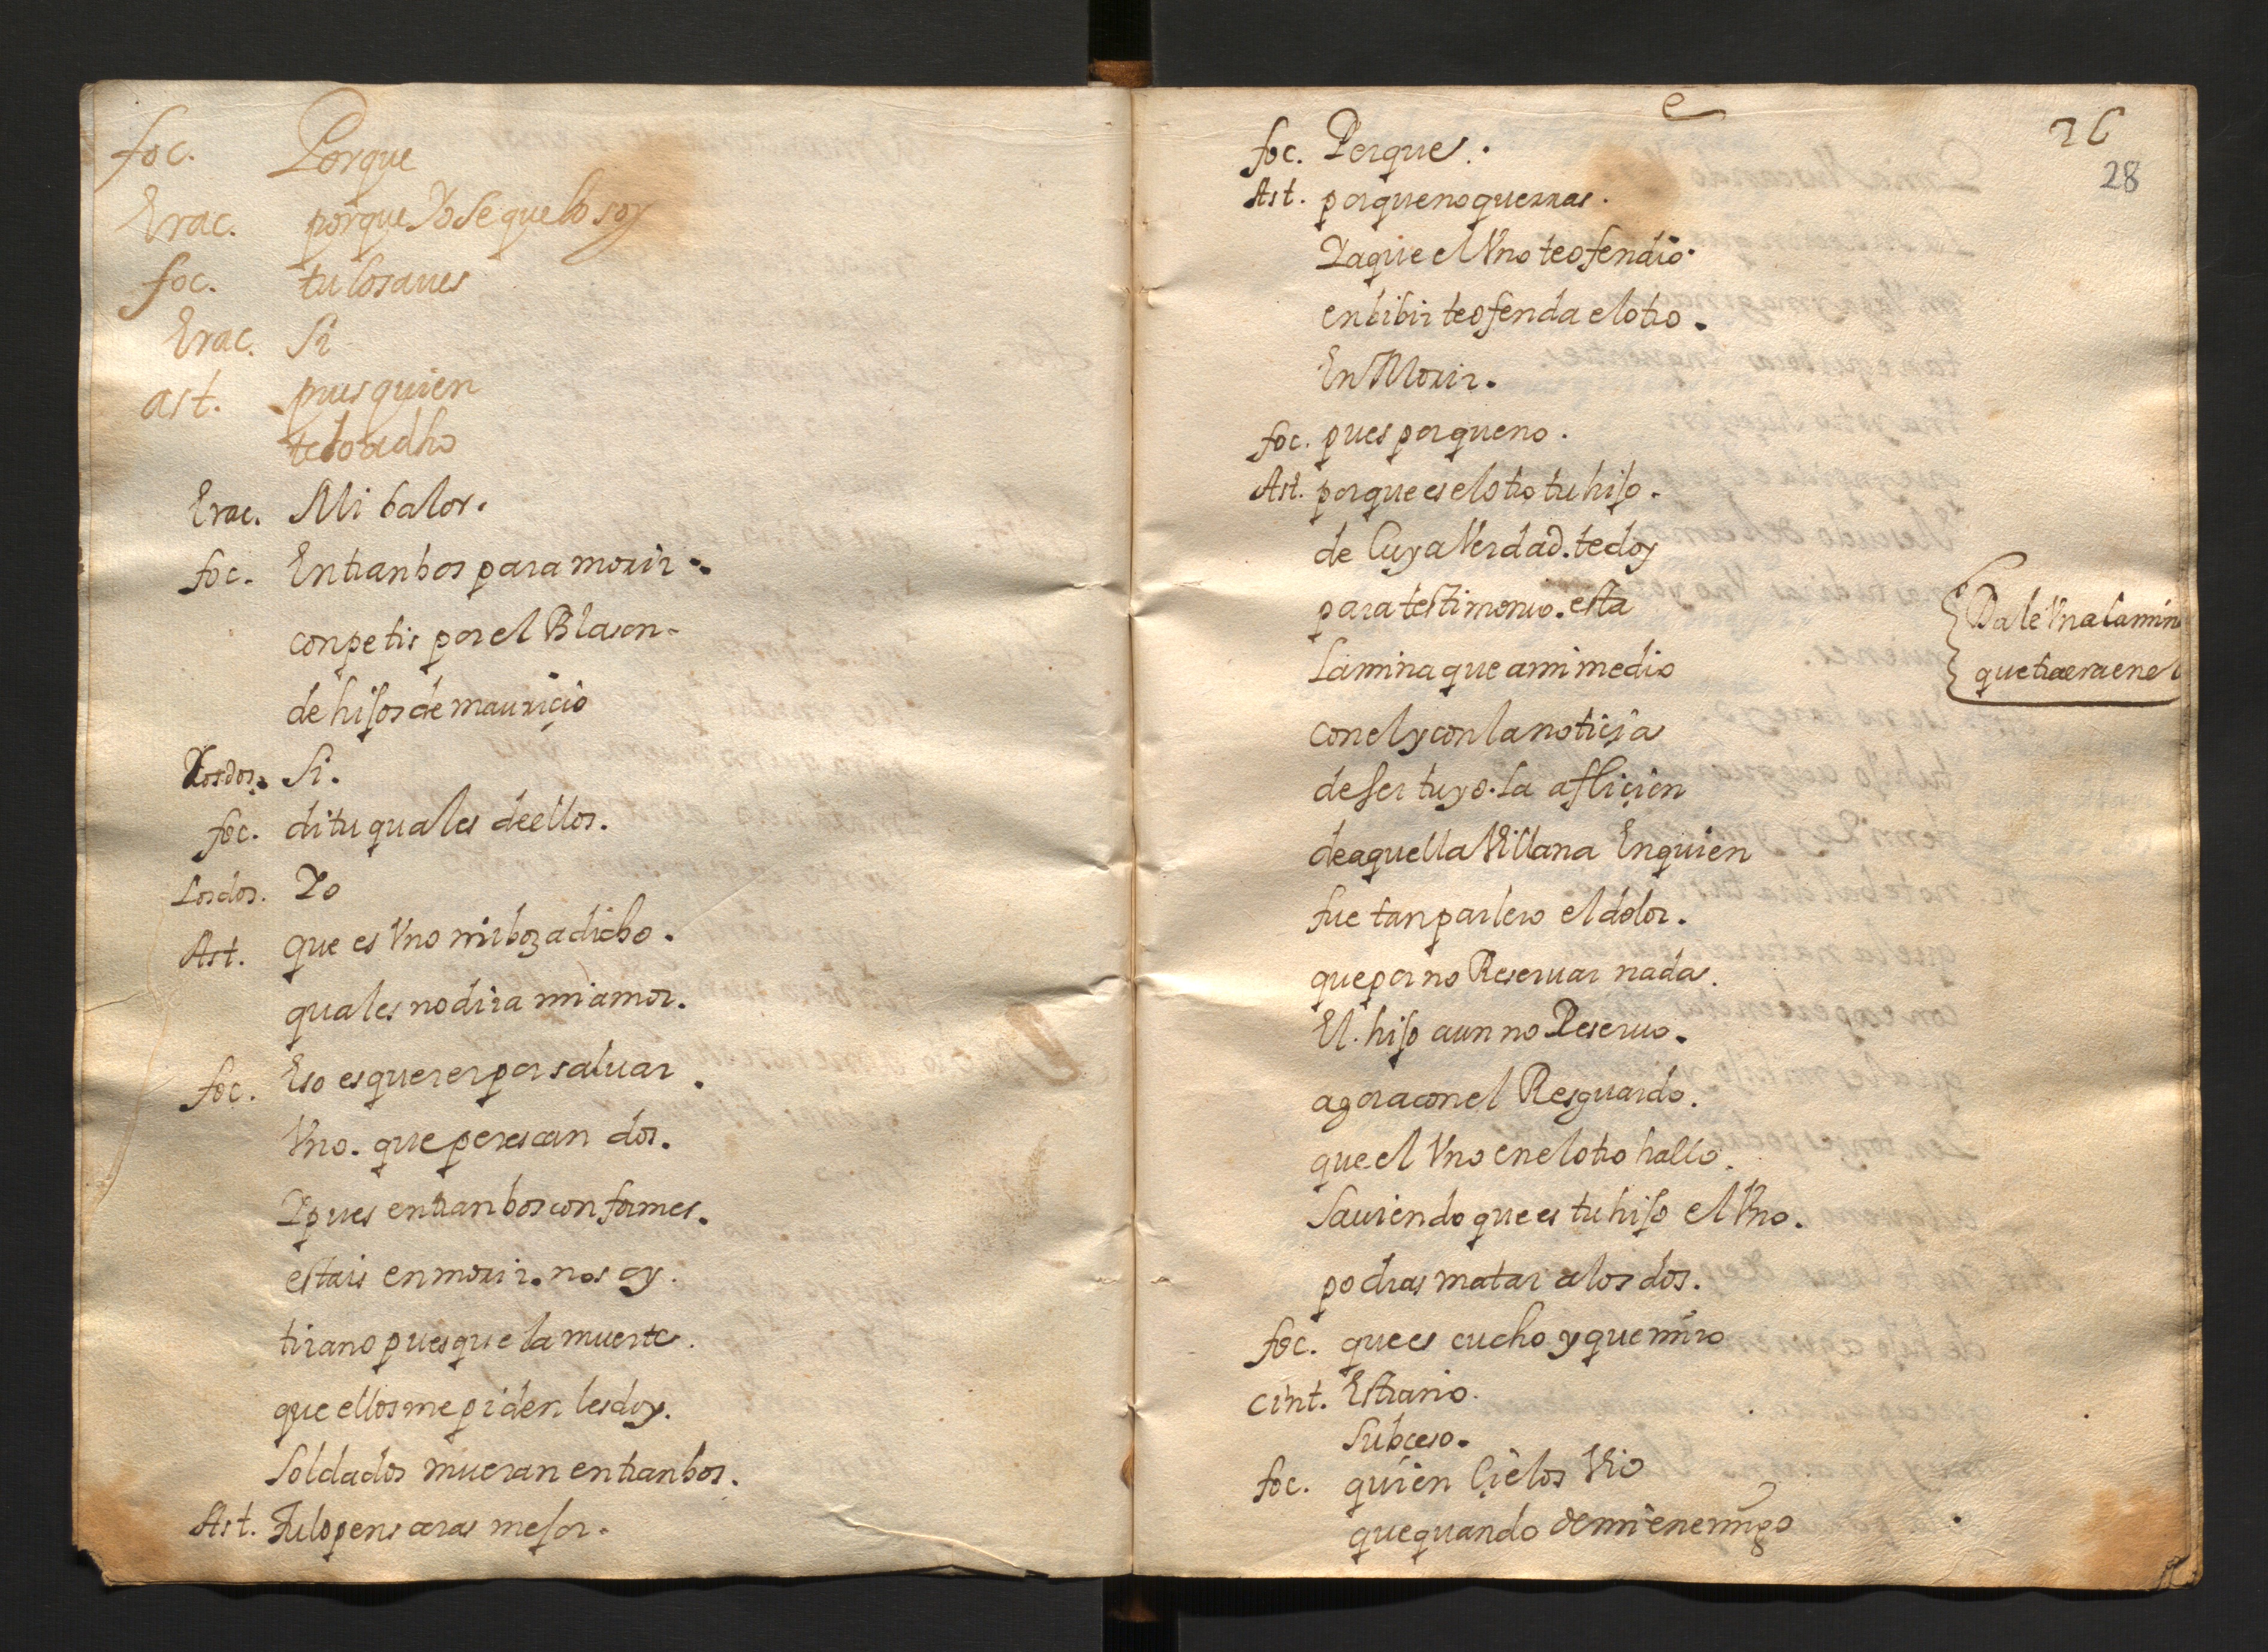 foc. Porque
Erac. porque Yo se que lo soy
foc. tu lo saues
Erac. Si
ast. pues quien
te lo a dho
Erac. Mi balor.
foc. Entranbos para morir.
conpetis por el Blason.
de hijos de mauriçio
Los dos. Si.
foc. di tu qual es de ellos.
Los dos. Yo
Ast. que es Vno mi boz a dicho.
qual es no dira mi amor.
foc. Eso es querer por saluar.
Vno. que perescan dos.
Y pues entranbos conformes.
estais en morir. no soy.
tirano pues que la muerte.
que ellos me piden les doy.
Soldados mueran entranbos.
Ast. Tu lo pensaras mejor.
26
28
foc. Porque.
Ast. porque no querras.
Ya que el Vno te ofendio.
en bibir te ofenda el otro.
En Morir.
foc. pues porque no.
Ast. porque es el otro tu hijo.
de Cuya Verdad. te doy
para testimonio. esta
Lamina que a mi me dio
Dale Vna lamin
que traera en el
con el y con la notiçia
de ser tuyo. La afliçion
de aquella Villana En quien
fue tan parlero el dolor.
que por no Reseruar nada.
El hijo aun no Reseruo.
agora con el Resguardo.
que el Vno en el otro hallo.
Sauiendo que es tu hijo el Vno.
podras matar a los dos.
foc. que escucho y que miro
Cint. Estrano.
Subceso.
foc. quien Çielos Vio
que quando de mi enemigo